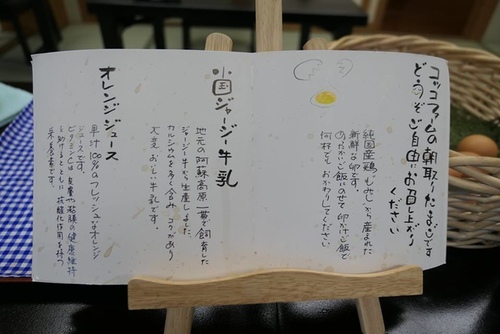 コッコファームの朝取りたまごです
どうぞ ご自由にお召し上がり
ください
純国産鶏もみじから産まれた
新鮮な卵です。
あったかいご飯にのせて卵かけご飯と
何杯でもおかわりしてください。
小国ジャージー牛乳
地元の阿蘇高原一帯で飼育した
ジャージー牛から生産しました。
カルシウムを多くふくみ、コクがあり
大変おいしい牛乳です。
オレンジジュース
果汁100%のフレッシュなオレンジ
ジュースです。
ビタミンCは皮膚や粘膜の健康維持
を助けるとともに抗酸化作用を持つ
栄養素です。